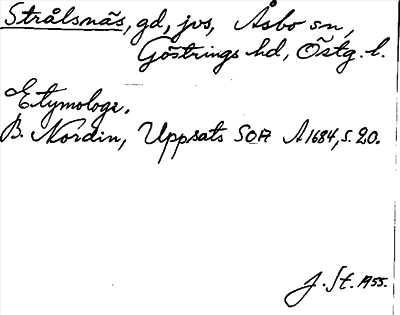 Strålsnäs, gd, jvs, Åsbo sn,
Göstrings hd, Östg. l.
Etymologe.
B. Nordin, Uppsats SOA A1684, s. 20.
J. St. 1955.